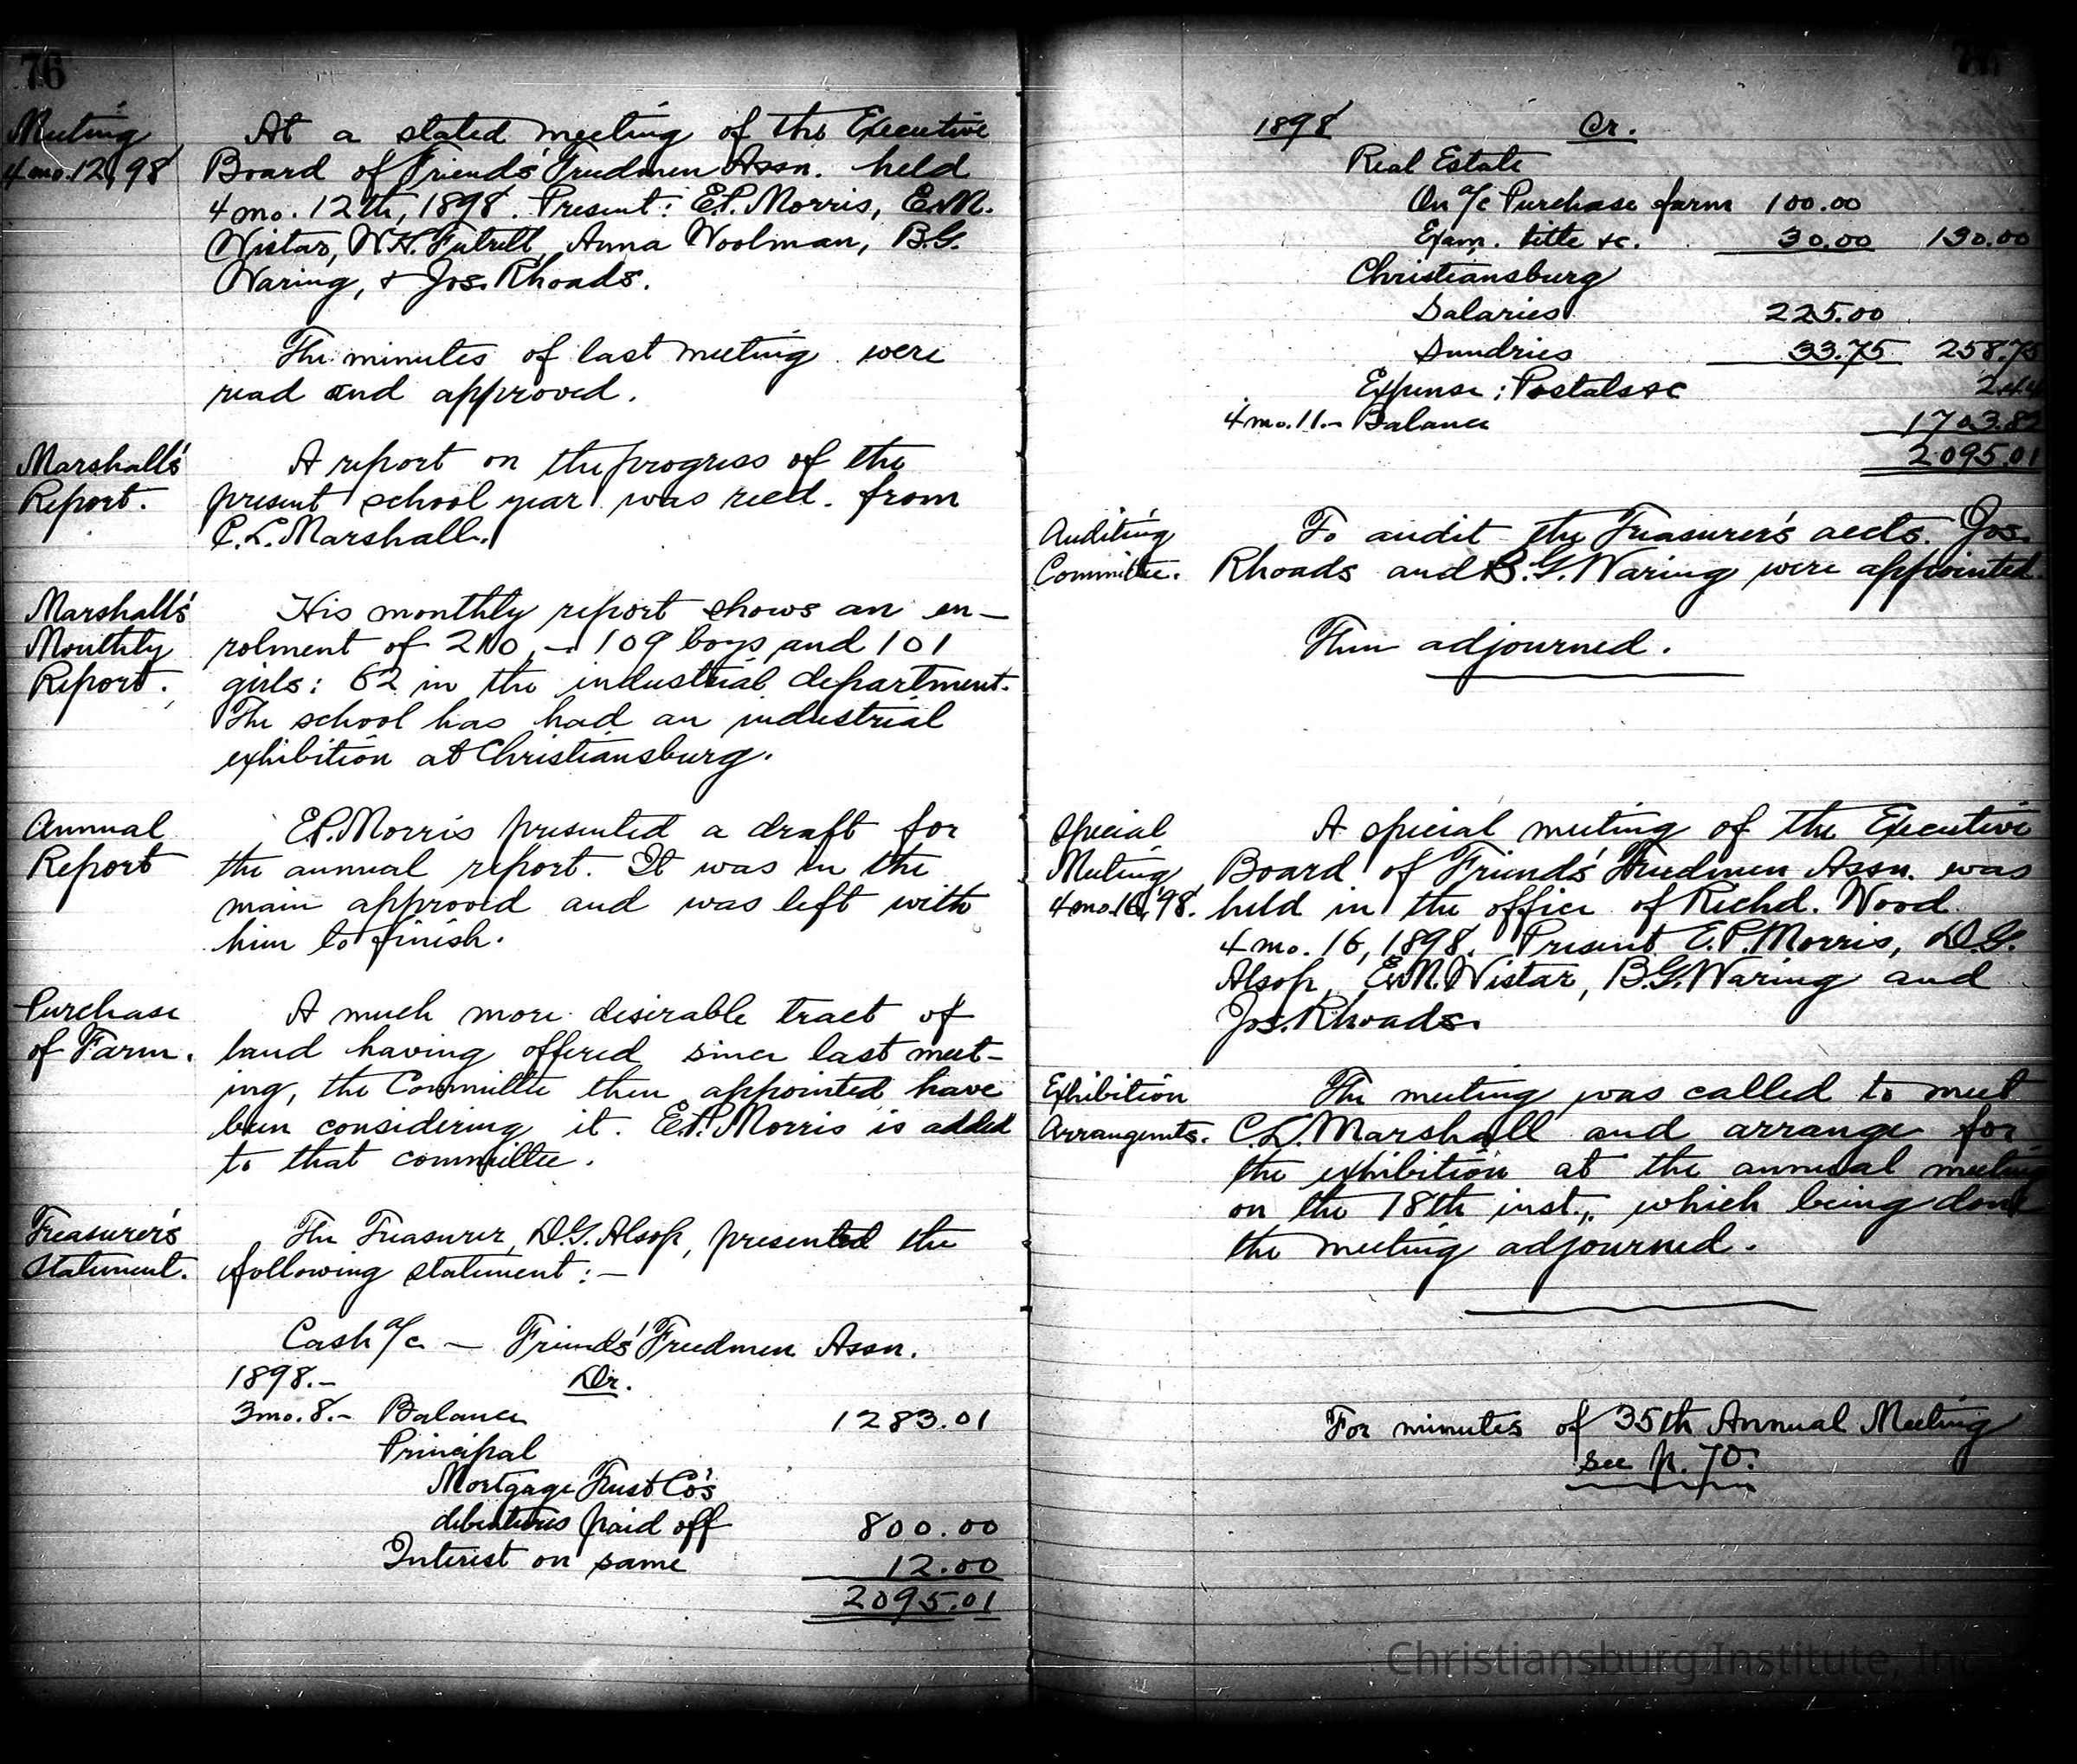 76
Meeting
4 mo. 12, 98
At a stated meeting of the Executive
Board of Friends' Freedmen Assn. held
4 mo. 12th, 1898. Present: E.P. Morris, E.M.
Wistar, W.H. Futrell, Anna Woolman, B.G.
Waring, & Jos. Rhoads.
The minutes of last meeting were
read and approved.
Marshall's
Report.
A report on the progress of the
present school year was recd. from
C.L. Marshall.
Marshall's
Monthly
Report.
His monthly report shows an en-
rolment of 210, - 109 boys and 101
girls: 62 in the industrial department.
The school has had an industrial
exhibition at Christiansburg.
Annual
Report
E.P. Morris presented a draft for
the annual report. It was in the
main approved and was left with
him to finish.
Purchase
of Farm.
A much more desirable tract of
land having offered since last meet-
ing, the Committee then appointed have
been considering it. E.P. Morris is added
to that committee.
Treasurer's
Statement.
The Treasurer, D.G. Alsop, presented the
following statement: -
Cash a/c - Friends' Freedmen Assn.
1898.- Dr.
3 mo. 8.- Balance 1283.01
Principal
Mortgage Trust Co's
debentures paid off 800.00
Interest on same 12.00
2095.01
1898 Cr.
Real Estate
On a/c Purchase farm 100.00
Exam. title &c. 30.00 130.00
Christiansburg
Salaries 225.00
Sundries 33.75 258.75
Expense: Postals &c 2.44
4 mo. 11.- Balance 1703.82
2095.01
Auditing
Committee.
To audit the Treasurer's accts. Jos.
Rhoads and B.G. Waring were appointed.
Then adjourned.
Special
Meeting
4 mo. 16, '98.
A special meeting of the Executive
Board of Friends' Freedmen Assn. was
held in the office of Richd. Wood
4 mo. 16, 1898. Present E.P. Morris, D.G.
Alsop, E.M. Wistar, B.G. Waring and
Jos. Rhoads.
Exhibition
Arrangemts.
The meeting was called to meet
C.L. Marshall and arrange for
the exhibition at the annual meeting
on the 18th inst., which being done
the meeting adjourned.
For minutes of 35th Annual Meeting
see p. 70.
Christiansburg Institute, Inc